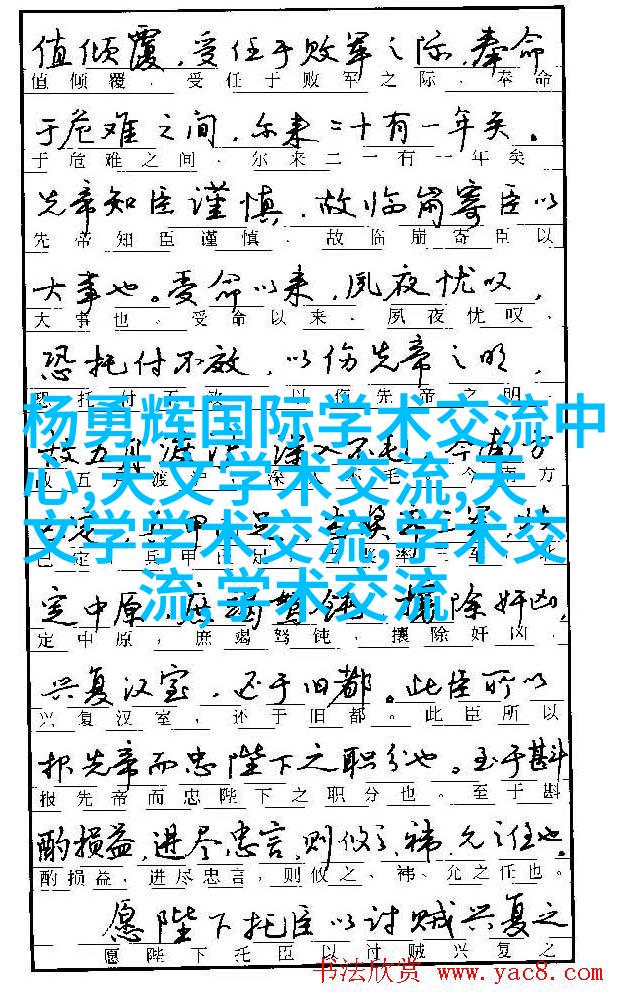 值倾覆，受任于败军之际，奉命
值倾覆，受任于败军之际，奉命
于危难之间，尔来二十有一年矣。
于危难之间，尔来二一有一年矣
先帝知臣谨慎，故临崩寄臣以
先帝知臣谨慎，故临崩寄臣以
大事也。受命以来，夙夜忧叹，
大事也。受命以来，夙夜忧叹，
恐托付不效，以伤先帝之明，
恐托付不效，以伤先帝之明，
杨勇辉国际学术交流中
心,天文学术交流,天
文学学术交流,学术交
流,学术交流
故五月渡泸，深入不毛。今南方
故五月渡泸，深入不毛。今南方
定中原，庶竭驽钝，攘除奸凶，
定中原，庶竭驽钝，攘除奸凶，
兴复汉室，还于旧都。此臣所以
兴复汉室，还于旧都。此臣所以
报先帝而忠陛下之职分也。至于斟
报先帝而忠陛下之职分也。至于斟
酌损益，进尽忠言，则攸之、祎、允之任也。
酌损益，进尽忠言，则攸之、祎、允之任也。
愿陛下托臣以讨贼兴复之
愿陛下托臣以讨贼兴复之
书法欣赏 www.yac8.com